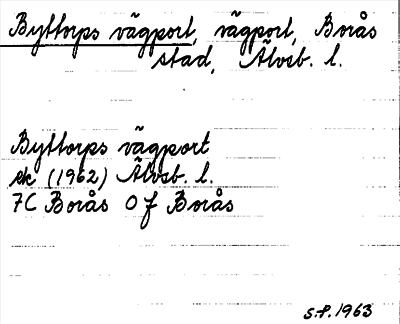 Byttorps vägport, vägport, Borås
stad, Älvsb. l.
Byttorps vägport
ek (1962) Älvsb. l.
7C Borås O f Borås
S.F. 1963